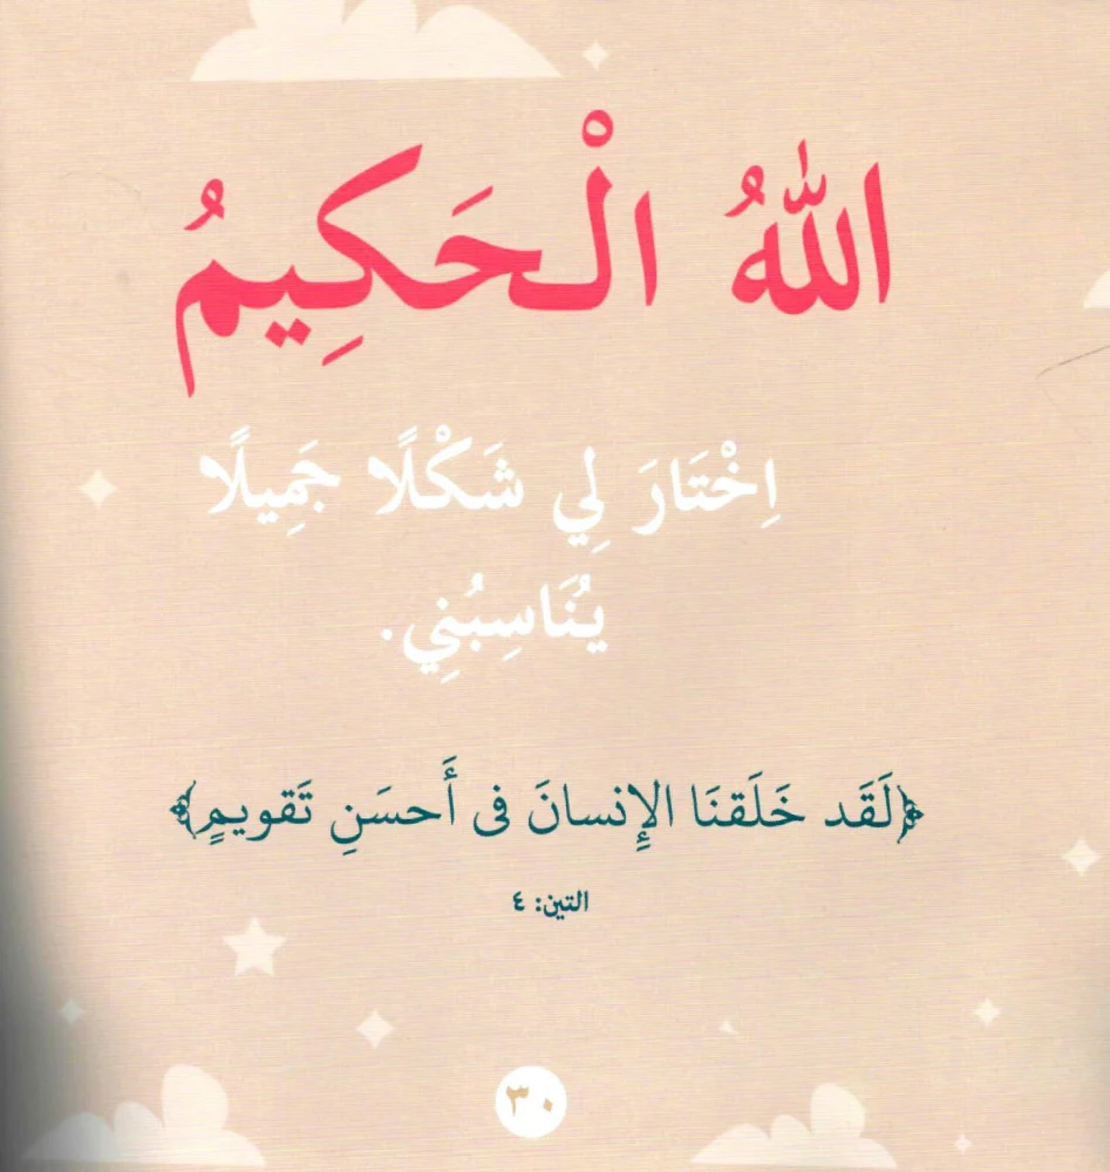 اللهُ الْحَكِيمُ
اِخْتَارَ لِي شَكْلًا جَمِيلًا
يُنَاسِبُنِي.
﴿لَقَد خَلَقنَا الإِنسانَ فى أَحسَنِ تَقويمٍ﴾
التين: ٤
٣٠